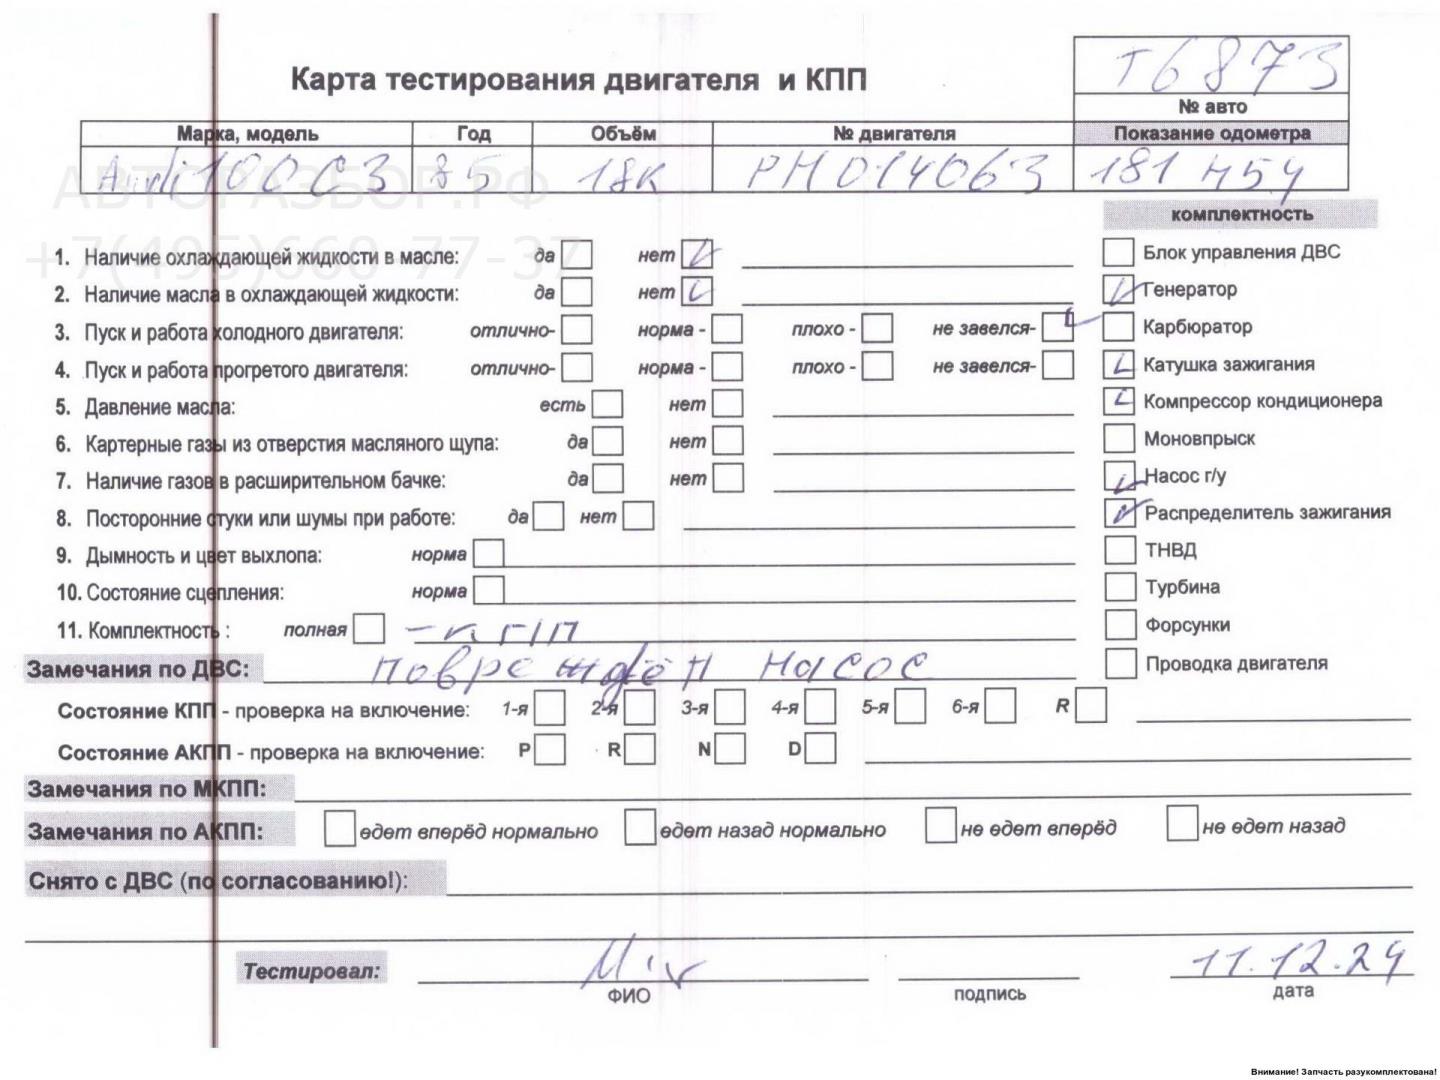 Т6873
Карта тестирования двигателя и КПП
№ авто
Марка, модель Год Объём № двигателя Показание одометра
Audi 100 C3 85 1.8K PH014063 181 454
АВТОРАЗБОР.РФ
+7(495)660-77-37
комплектность
1. Наличие охлаждающей жидкости в масле: да нет
Блок управления ДВС
2. Наличие масла в охлаждающей жидкости: да нет
Генератор
3. Пуск и работа холодного двигателя: отлично- норма - плохо - не завелся-
Карбюратор
4. Пуск и работа прогретого двигателя: отлично- норма - плохо - не завелся-
Катушка зажигания
5. Давление масла: есть нет
Компрессор кондиционера
6. Картерные газы из отверстия масляного щупа: да нет
Моновпрыск
7. Наличие газов в расширительном бачке: да нет
Насос г/у
8. Посторонние стуки или шумы при работе: да нет
Распределитель зажигания
9. Дымность и цвет выхлопа: норма
ТНВД
10. Состояние сцепления: норма
Турбина
11. Комплектность : полная - КПП
Форсунки
Замечания по ДВС: повреждён насос
Проводка двигателя
Состояние КПП - проверка на включение: 1-я 2-я 3-я 4-я 5-я 6-я R
Состояние АКПП - проверка на включение: P R N D
Замечания по МКПП:
Замечания по АКПП: едет вперёд нормально едет назад нормально не едет вперёд не едет назад
Снято с ДВС (по согласованию!):
Тестировал: 11.12.24
ФИО подпись дата
Внимание! Запчасть разукомплектована!